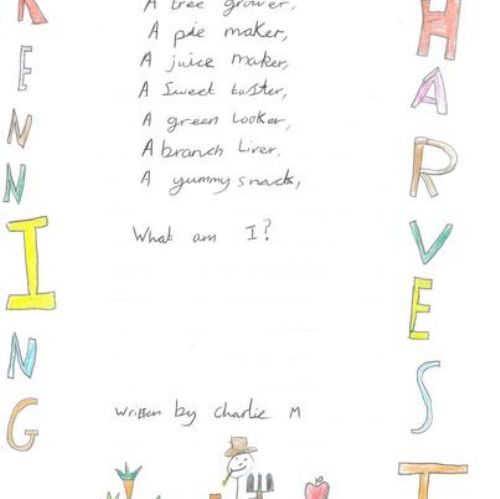 KENNING
A tree grower,
A pie maker,
A juice maker,
A Sweet taster,
A green Looker,
A branch Liver.
A yummy snack,
What am I?
Written by Charlie M
HARVEST